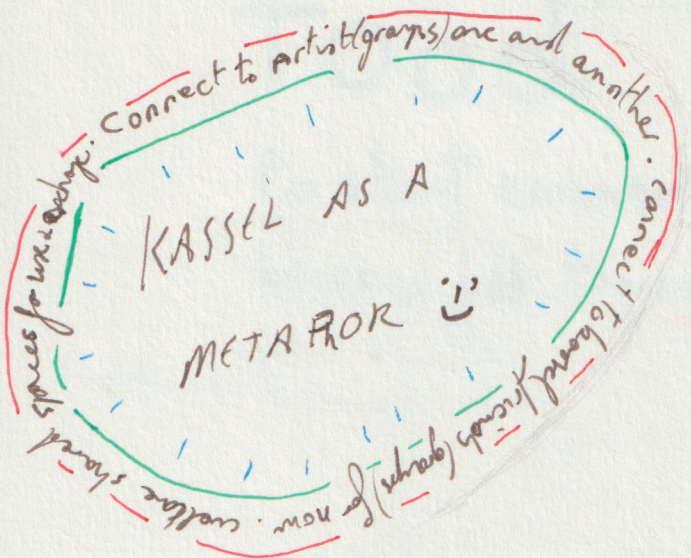 KASSEL AS A
METAPHOR
connect to artist(groups) one and another. connect to kassel friends (groups) for now. welfare shared spaces for work & exchange.